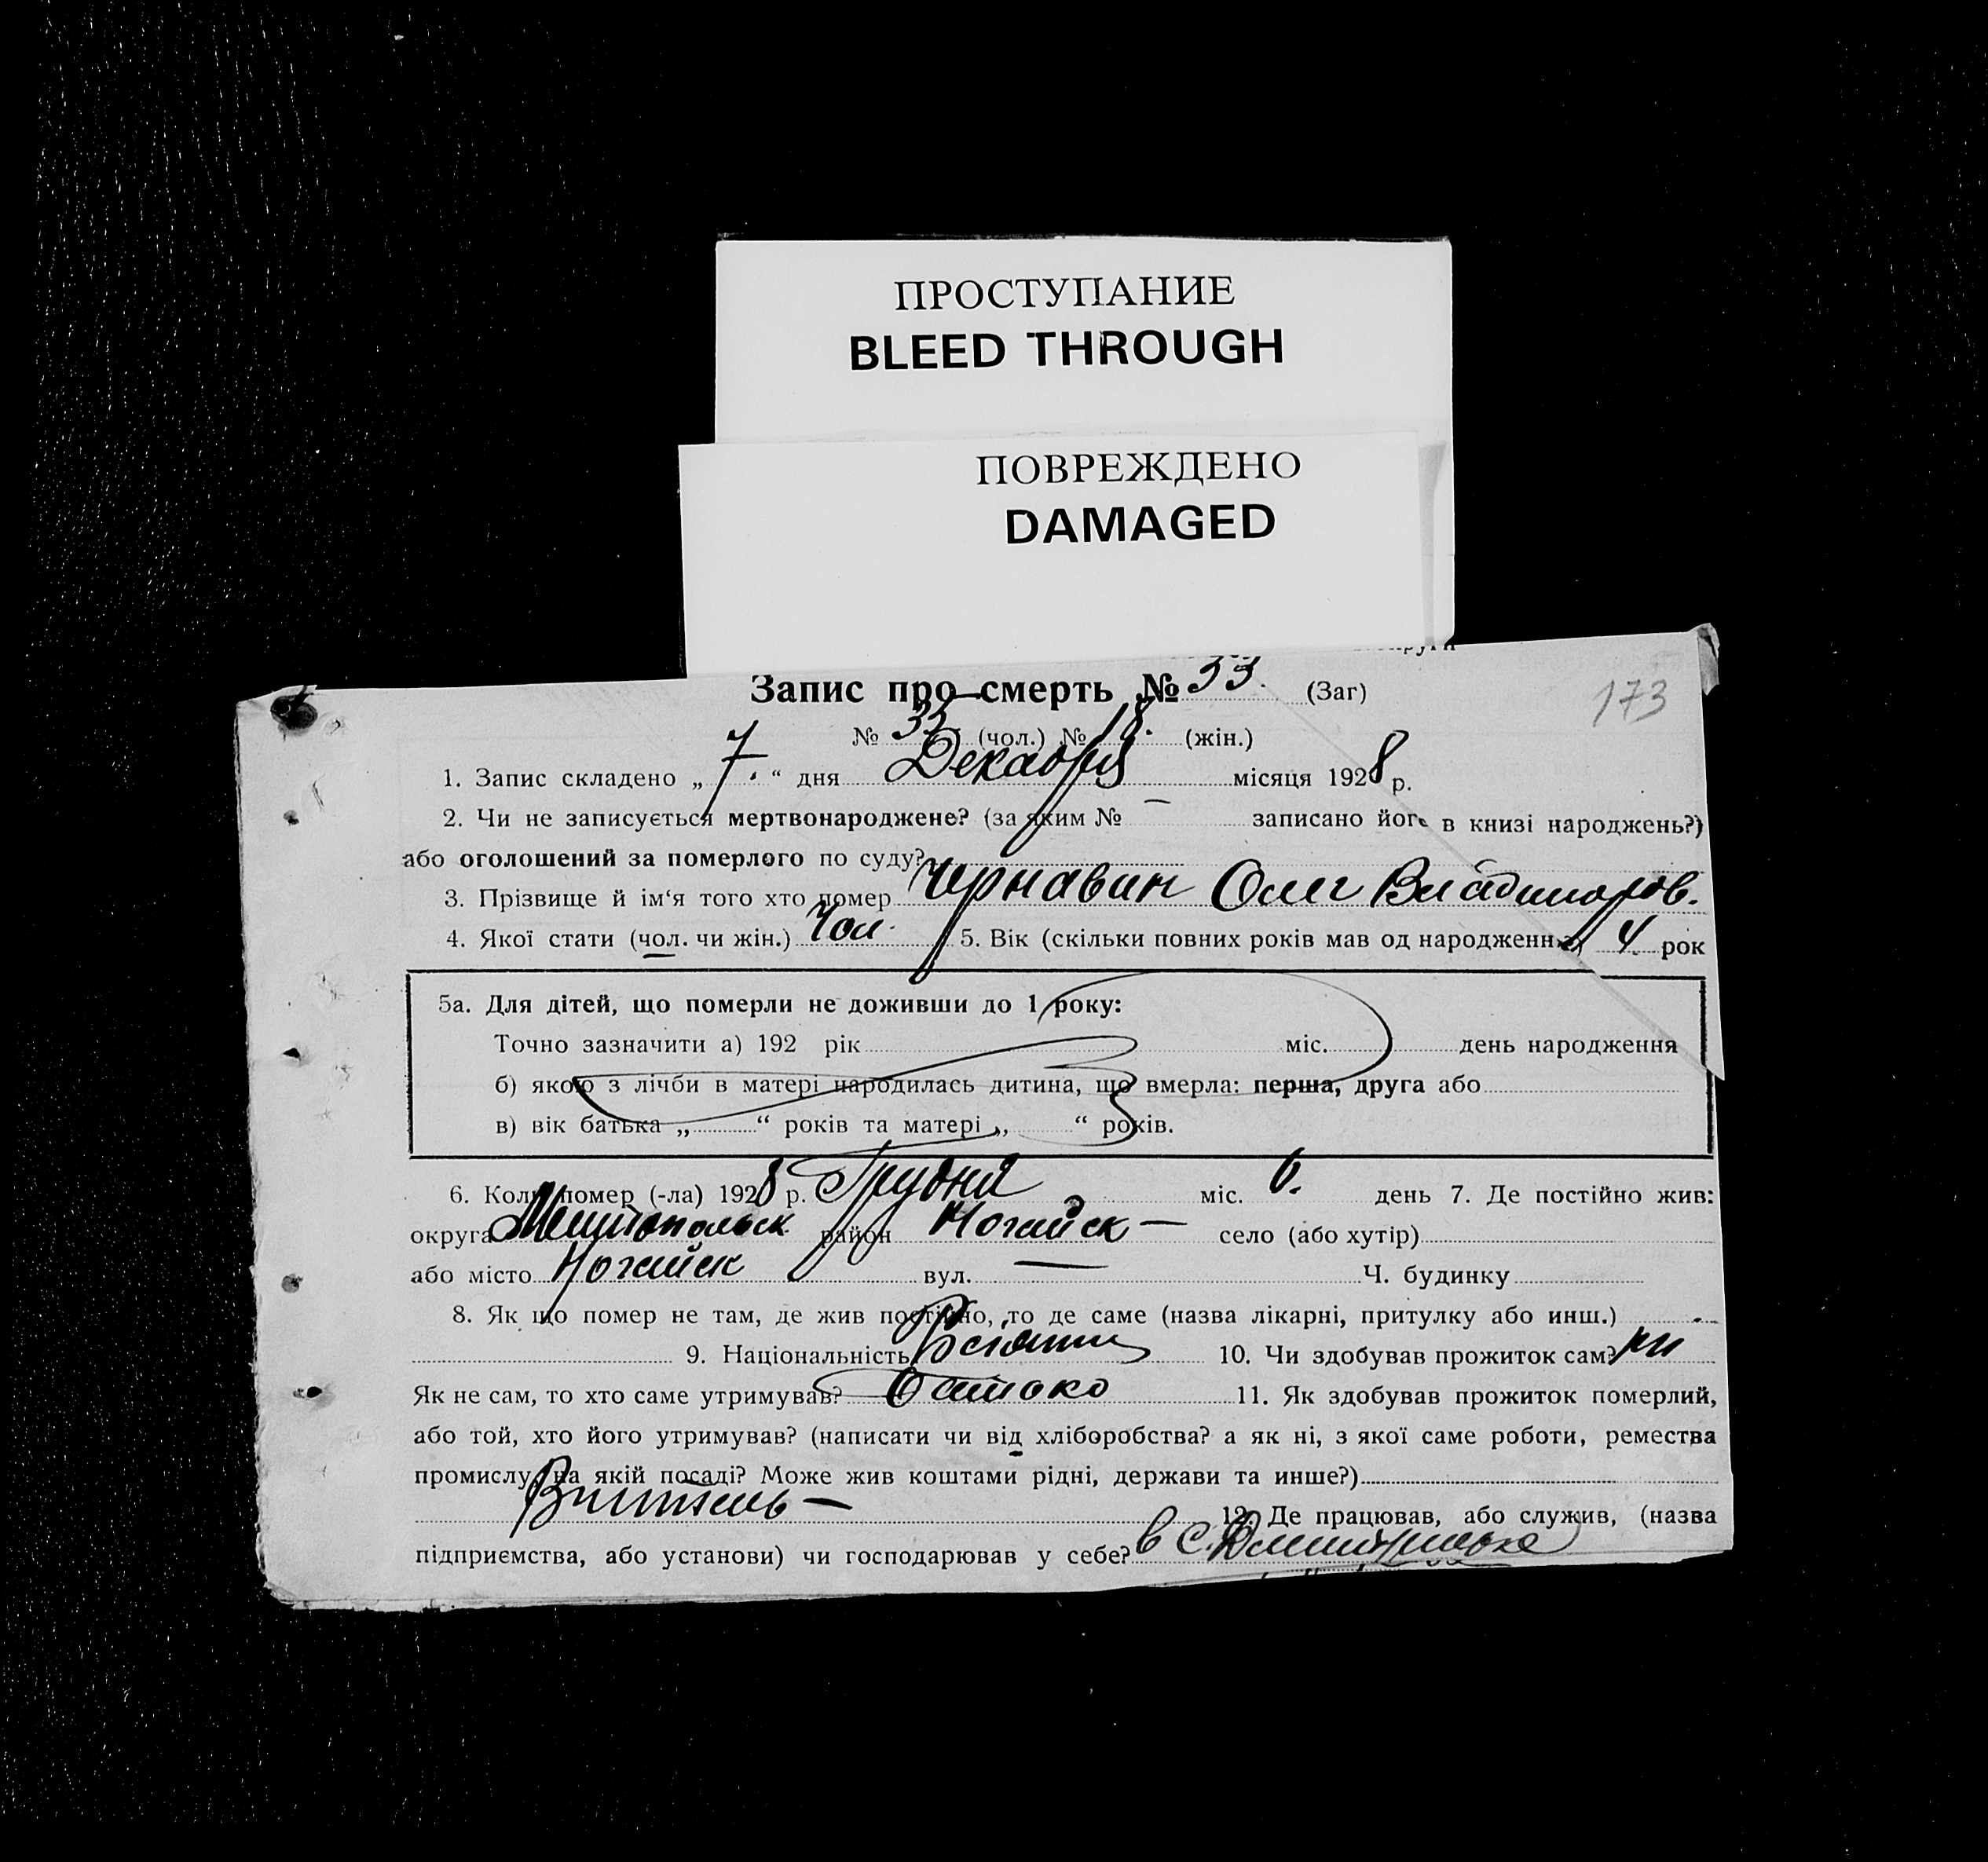 ПРОСТУПАНИЕ
BLEED THROUGH
ПОВРЕЖДЕНО
DAMAGED
Запис про смерть № 53. (Заг)
173
№ 35 (чол.) № 18. (жін.)
1. Запис складено „ 7. “ дня Декабря місяця 1928 р.
2. Чи не записується мертвонароджене? (за яким № — записано його в книзі народжень?)
або оголошений за померлого по суду?
3. Прізвище й ім‘я того хто помер Чернавин Олег Владимиров.
4. Якої стати (чол. чи жін.) Чол. 5. Вік (скільки повних років мав од народження) 4 рок
5а. Для дітей, що померли не доживши до 1 року:
Точно зазначити а) 192 рік міс. день народження
б) якою з лічби в матері народилась дитина, що вмерла: перша, друга або
в) вік батька „ “ років та матері „ “ років.
6. Коли помер (-ла) 1928 р. Грудня міс. 6. день 7. Де постійно жив:
округа Мелітопольск район Ногайск — село (або хутір)
або місто Ногайск вул. — Ч. будинку
8. Як що помер не там, де жив постійно, то де саме (назва лікарні, притулку або инш.)
9. Національність 10. Чи здобував прожиток сам? ни
Як не сам, то хто саме утримував? Батько 11. Як здобував прожиток померлий,
або той, хто його утримував? (написати чи від хліборобства? а як ні, з якої саме роботи, ремества
промислу, на якій посаді? Може жив коштами рідні, держави та инше?)
Вчитель —
12. Де працював, або служив, (назва
підприємства, або установи) чи господарював у себе? в с.